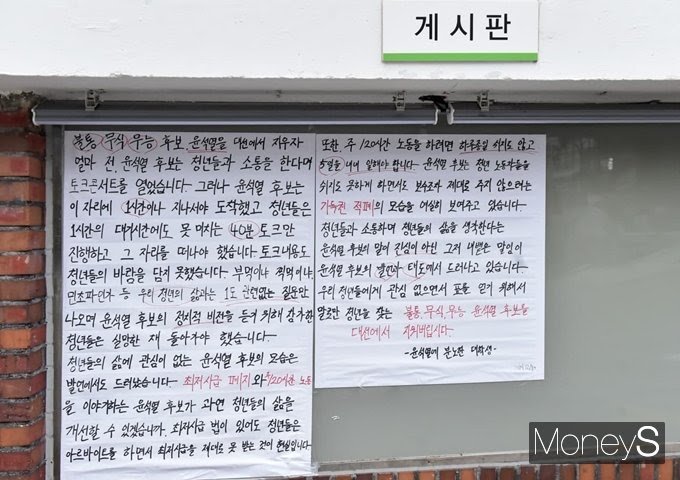 게시판
불통, 무식, 무능 후보, 윤석열을 대선에서 지우자
얼마 전, 윤석열 후보는 청년들과 소통을 한다며
토크콘서트를 열었습니다. 그러나 윤석열 후보는
이 자리에 1시간이나 지나서야 도착했고 청년들은
1시간의 대기시간에도 못 미치는 40분 토크만
진행하고 그 자리를 떠나야 했습니다. 토크내용도
청년들의 바람을 담지 못했습니다. 부먹이나 찍먹이나
민초파인가 등 우리 청년의 삶과는 1도 관련없는 질문만
나오며 윤석열 후보의 정치적 비전을 듣기 위해 참가한
청년들은 실망한 채 돌아가야 했습니다.
청년들의 삶에 관심이 없는 윤석열 후보의 모습은
발언에서도 드러났습니다. 최저시급 폐지와 주120시간 노동
을 이야기하는 윤석열 후보가 과연 청년들의 삶을
개선할 수 있겠습니까. 최저시급 법이 있어도 청년들은
아르바이트를 하면서 최저시급을 제대로 못 받는 것이 현실입니다.
또한, 주 120시간 노동을 하려면 하루종일 쉬지도 않고
5일을 내내 일해야 합니다. 윤석열 후보는 청년 노동자들을
쉬지도 못하게 하면서도 보수조차 제대로 주지 않으려는
기득권 적폐의 모습을 여실히 보여주고 있습니다.
청년들과 소통하며 청년들의 삶을 생각한다는
윤석열 후보의 말이 진심이 아닌 그저 내뱉은 말임이
윤석열 후보의 발언과 태도에서 드러나고 있습니다.
우리 청년들에게 관심 없으면서 표를 얻기 위해서
말로만 청년을 찾는 불통, 무식, 무능 윤석열 후보를
대선에서 지워버립시다.
-윤석열에 분노한 대학생-
MoneyS